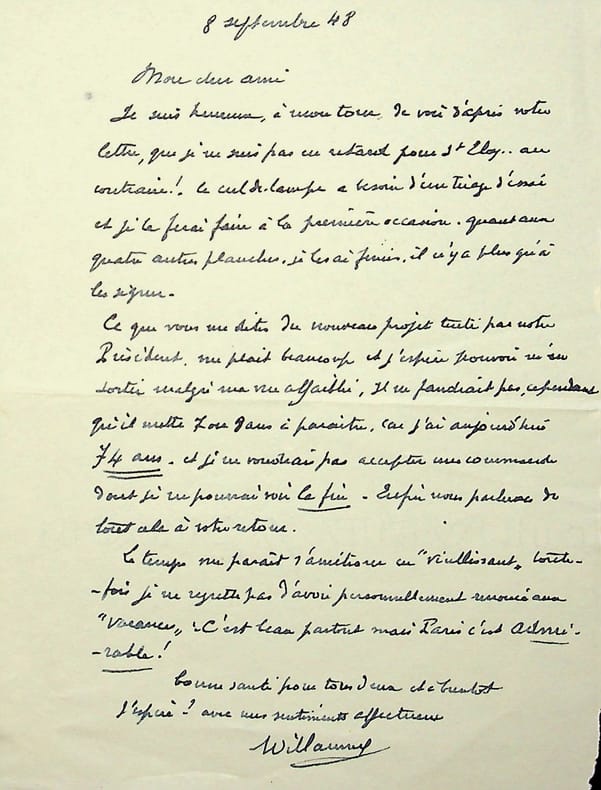 8 septembre 48
Mon cher ami
Je suis heureux, à mon tour, de voir d'après votre
lettre, que je ne suis pas en retard pour St Eloy.. au
contraire! Le cul de lampe a besoin d'un tirage d'essai
et je le ferai faire à la première occasion. quant aux
quatre autres planches, je les ai finies, il n'y a plus qu'à
les signer.
Ce que vous me dites du nouveau projet par notre
Président, me plait beaucoup et j'espère pouvoir m'en
sortir malgré ma vue affaiblie, Il ne faudrait pas, cependant
qu'il mette 7 ou 8 ans à paraitre, car j'ai aujourd'hui
74 ans. et je ne voudrais pas accepter une commande
dont je ne pourrai voir la fin - Enfin nous parlerons de
tout cela à votre retour.
Le temps me paraît s'améliorer en "vieillissant" toute-
-fois je ne regrette pas d'avoir personnellement renoncé aux
"vacances", : C'est beau partout mais Paris c'est admi-
-rable!
bonne santé pour tous deux et à bientot
j'espère! avec mes sentiments affectueux